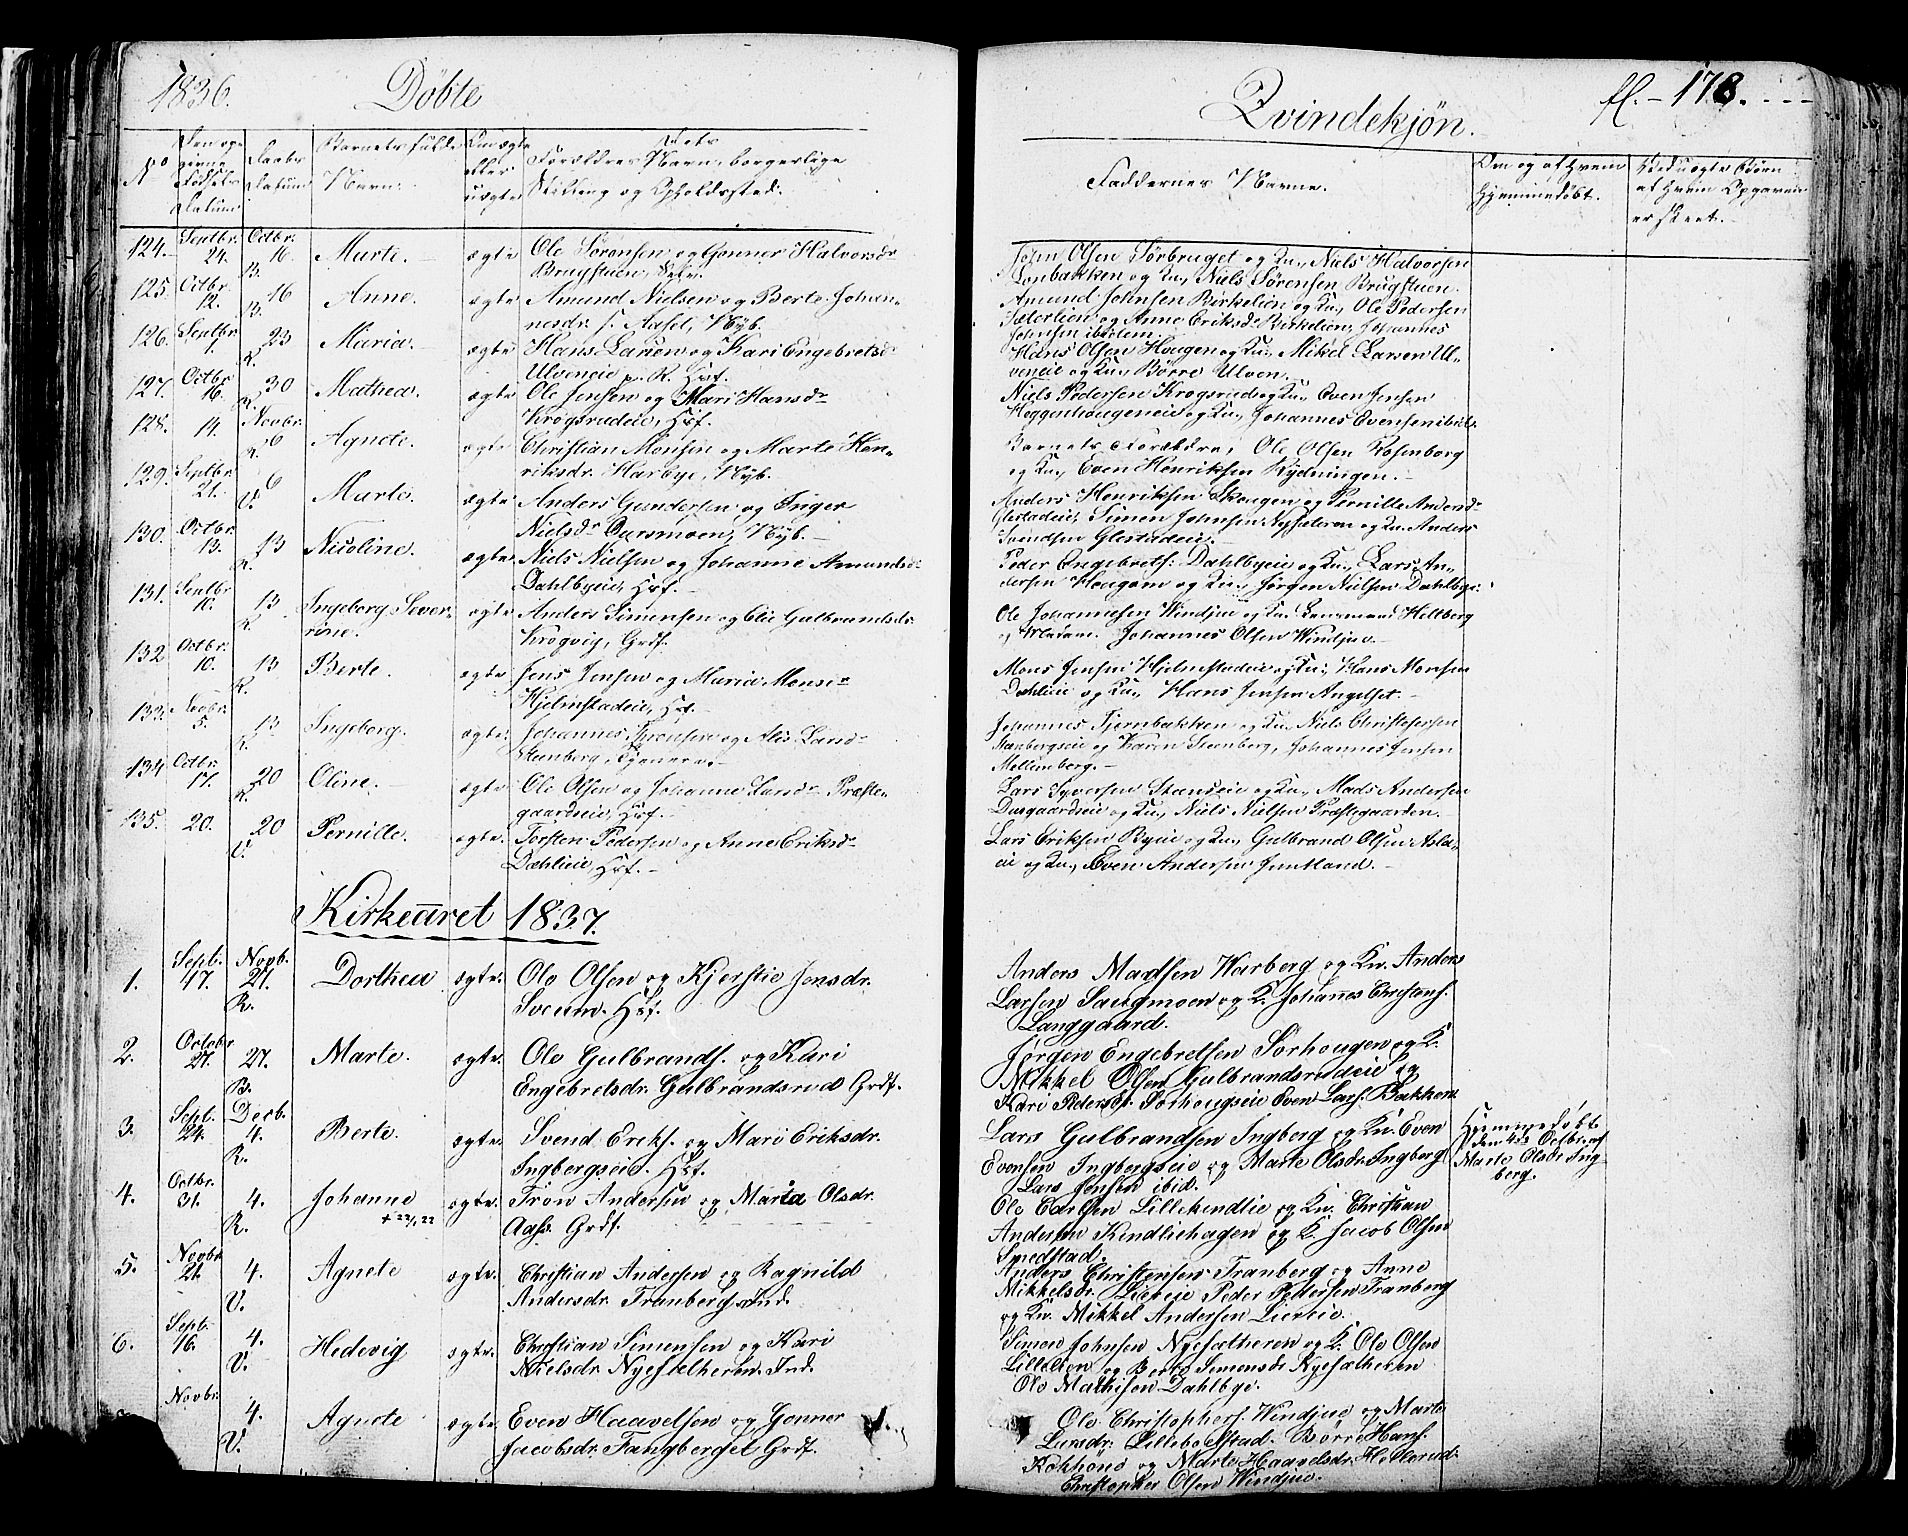 1836.
Døbte
Qvindekjøn.
fl. - 178.
No
Den op-
givne
Fødsels
Datum
Daabs
Datum
Barnets fulde
Navn.
Om ægte
eller
uægte
Dets
Forældres Navn, borgerlige
Stilling og Opholdssted.
Faddernes Navne.
Om og af Hvem
Hjemmedøbt.
Ved uægte Børn
af Hvem Opgaven
er skeet.
124. Septbr. 24. Octbr. 16 B. Marte. ægte Ole Sørensen og Gonner Halvorsdr
Brugstuen,
John Olsen Sørbruget og Ku., Niels Halvorsen
Lonbakken og Ku., Niels Sørensen Brugstuen.
125. Octbr. 12. 16 B. Anne. ægte Amund Nielsen og Berte Johan-
nesdr. s. Aaset, Nyb.
Amund Johnsen Birkelien og Ku., Ole Pedersen
Sæterlien og Anne Eriksdr Birkelien, Johannes
Johnsen ibidem.
126. Septbr. 1. 23 R. Maria. ægte Hans Larsen og Kari Engebretsdr
Ulveneie p. R. Hsf.
Hans Olsen Hougen og Ku., Mikel Larsen Ul-
veneie og Ku., Børre Ulven.
127. Octbr. 16. 30 R. Mathea. ægte Ole Jensen og Mari Hansdr
Krogsrudeie, Hsf.
Niels Pedersen Krogsrudeie og Ku., Even Jensen
Heggenhougeneie og Ku., Johannes Evensen ibid.
128. 14. Novbr. 6 R. Agnete. ægte Christian Monsen og Marte Hen-
riksdr. Marbye, Nyb.
Barnets Forældre, Ole Olsen Rosenborg
og Ku., Even Henriksen Rydningen.
129. Septbr. 21. 6 V. Marte. ægte Anders Gundersen og Inger
Nielsdr Aarsmoen, Nyb.
Anders Henriksen Skougen og Pernille Andersdr
Glestadeie, Simen Johnsen Nysæteren og Ku. Anders
Svendsen Glestadeie.
130. Octbr. 13. 13 R. Nicoline. ægte Niels Nielsen og Johanne Amundsdr
Dahlbyeie, Hsf.
Peder Engebrets: Dahlbyeie og Ku., Lars An-
dersen Hougom og Ku., Jørgen Nielsen Dahlbye:
131. Septbr 10. 13 R. Ingeborg Sever-
rine. ægte Anders Simensen og Olia Gulbrandsdr.
Krogvig, Grdf.
Ole Johannesen Windjue og Ku. Lensmand Heltberg
og Madam. Johannes Olsen Windjue.
132 Octbr. 10. 13 R. Berte. ægte Jens Jensen og Maria Monsdr
Hjelmstadeie, Hsf.
Mons Jensen Hjelmstadeie og Ku., Hans Monsen
Dahleie og Ku., Hans Jensen Angelset.
133. Novbr. 5. 13 R. Ingeborg. ægte Johannes Svensen og Alis Lars-
Steenberg, Tjenere.
Johannes Tjernbakken og Ku Niels Christophersen
Steenbergseie og Karen Steenberg, Johannes Jensen
Mellemberg.
134 Octbr. 17. 20 R. Oline. ægte Ole Olsen og Johanne Larsdr Præste-
gaardseie, Hsf.
Lars Syversen Strandeie og Ku., Mads Andersen
Prestgaardseie og Ku., Niels Nielsen Præstegaarden.
135. 20. 20 V. Pernille. ægte Torsten Pedersen og Anne Eriksdr
Dæhlieie, Hsf.
Lars Eriksen Byeie og Ku., Gulbrand Olsen Asla-
eie og Ku., Even Andersen Jemtland.
Kirkeåaret 1837.
1. Sept. 17. Novb. 21. R. Dorthea ægte. Ole Olsen og Kjerstie Jensdr.
Sveum. Hsf.
Anders Madsen Warberg og Kn. Anders
Larsen Saugmoen og K. Johannes Christens.
Langgaard.
2. Octobr 27. 27. B. Marte. ægte. Ole Gulbrands. og Kari
Engebretsdr. Gulbrandsrud Grdf.
Jørgen Engebretsen Sørhougen og K.
Mikkel Olsen Gulbrandsrudeie og
Kari Pedersdr. Sørhougseie Even Lars. Bakken
3. Sept. 24. Decb. 4. R. Berte. ægte. Svend Eriks. og Mari Eriksdr.
Ingbergseie. Hsf.
Lars Gulbrandsen Ingberg og Kn. Even
Evensen Ingbergseie og Marte Olsdr. Ingberg
Lars Jensen ibid.
Hjemmedøbt
dem 4de Octbr. af
Marte Olsdr. Ing-
berg.
4. Octbr. 31. 4. R. Johanne ægte. Tron Andersen og Marta Olsdr.
Aas. Grdf.
Ole Carlsen Lillekindlie og Kn. Christian
Andersen Kindliehagen og K. Jacob Olsen
Smedstad.
5. Novbr 21. 4. V. Agnete ægte. Christian Andersen og Ragnild
Andersdr. Tranberg. Ind.
Anders Christensen Tranberg og Anne
Mikkelsdr. Lieeie Peder Pedersen Tranberg
og Kn. Mikkel Andersen Lieeie.
6. Sept. 16. 4. V. Hedevig ægte. Christian Simensen og Kari
Nielsdr. Nyesætheren. Ind.
Simen Johnsen Nyesætheren og K. Ole Olsen
Lillelien og Berte Simensdr Nyesætheren
Ole Mathisen Dahlbye.
Novbr. 4. V. Agnete ægte. Even Haavelsen og Gonner
Jacobsdr. Fangberget, Grdf.
Ole Christophers. Windjue og Marte
Larsdr. Lillebolstad. Børre Hans.
og Marte Haavelsdr.
Christopher Olsen Windjue.